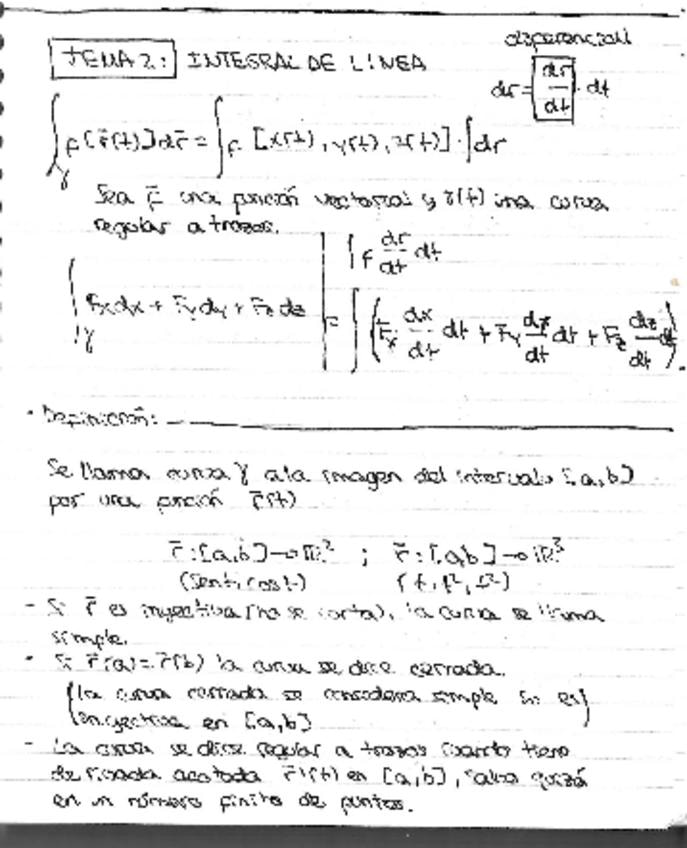 diferencial
TEMA 2: INTEGRAL DE LINEA
dr = dr/dt · dt
∫γ F[r̄(t)]dr̄ = ∫ F [x(t), y(t), z(t)] · ∫dr
Sea F̄ una función vectorial y γ(t) una curva
regular a trozos.
∫ F dr/dt dt
∫γ Fx dx + Fy dy + Fz dz = ∫ (Fx dx/dt dt + Fy dy/dt dt + Fz dz/dt dt).
· Definición:
Se llama curva γ a la imagen del intervalo [a,b]
por una función r̄(t)
r̄ : [a,b] → ℝ² ; r̄ : [a,b] → ℝ³
(sent, cost) (t, t², t²)
- Si r̄ es inyectiva (no se corta), la curva se llama
simple.
- Si r̄(a) = r̄(b) la curva se dice cerrada.
(la curva cerrada se considera simple si es)
inyectiva en [a,b]
- La curva se dice regular a trozos cuando tiene
derivada acotada r̄'(t) en [a,b], salvo quizá
en un número finito de puntos.